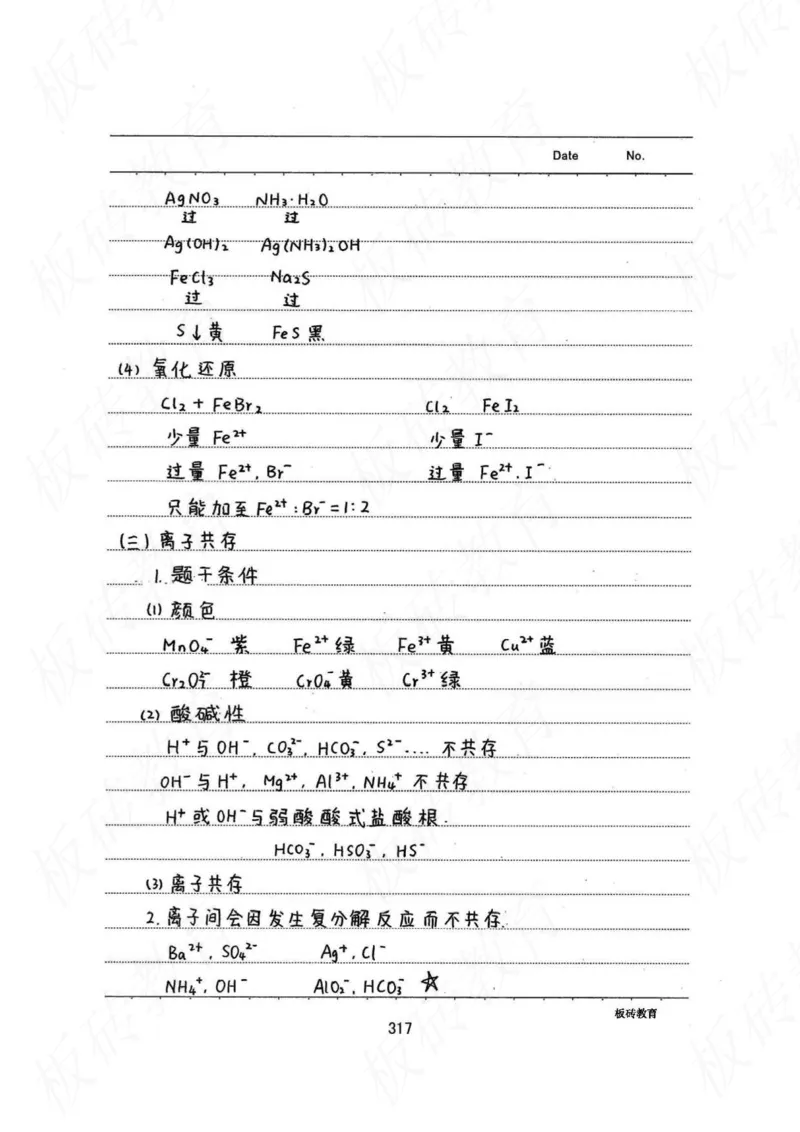 Date No.
AgNO₃ NH₃·H₂O
过 过
Ag(OH)₂ Ag(NH₃)₂OH
FeCl₃ Na₂S
过 过
S↓黄 FeS 黑
(4) 氧化还原
Cl₂ + FeBr₂ Cl₂ FeI₂
少量 Fe²⁺ 少量 I⁻
过量 Fe²⁺, Br⁻ 过量 Fe²⁺, I⁻
只能加至 Fe²⁺ : Br⁻ = 1:2
(三) 离子共存
1. 题干条件
(1) 颜色
MnO₄⁻ 紫 Fe²⁺ 绿 Fe³⁺ 黄 Cu²⁺ 蓝
Cr₂O₇²⁻ 橙 CrO₄⁻ 黄 Cr³⁺ 绿
(2) 酸碱性
H⁺ 与 OH⁻, CO₃²⁻, HCO₃⁻, S²⁻.... 不共存
OH⁻ 与 H⁺, Mg²⁺, Al³⁺, NH₄⁺ 不共存
H⁺ 或 OH⁻ 与弱酸酸式盐酸根.
HCO₃⁻, HSO₃⁻, HS⁻
(3) 离子共存
2. 离子间会因发生复分解反应而不共存.
Ba²⁺, SO₄²⁻ Ag⁺, Cl⁻
NH₄⁺, OH⁻ AlO₂⁻, HCO₃⁻ ☆
板砖教育
317